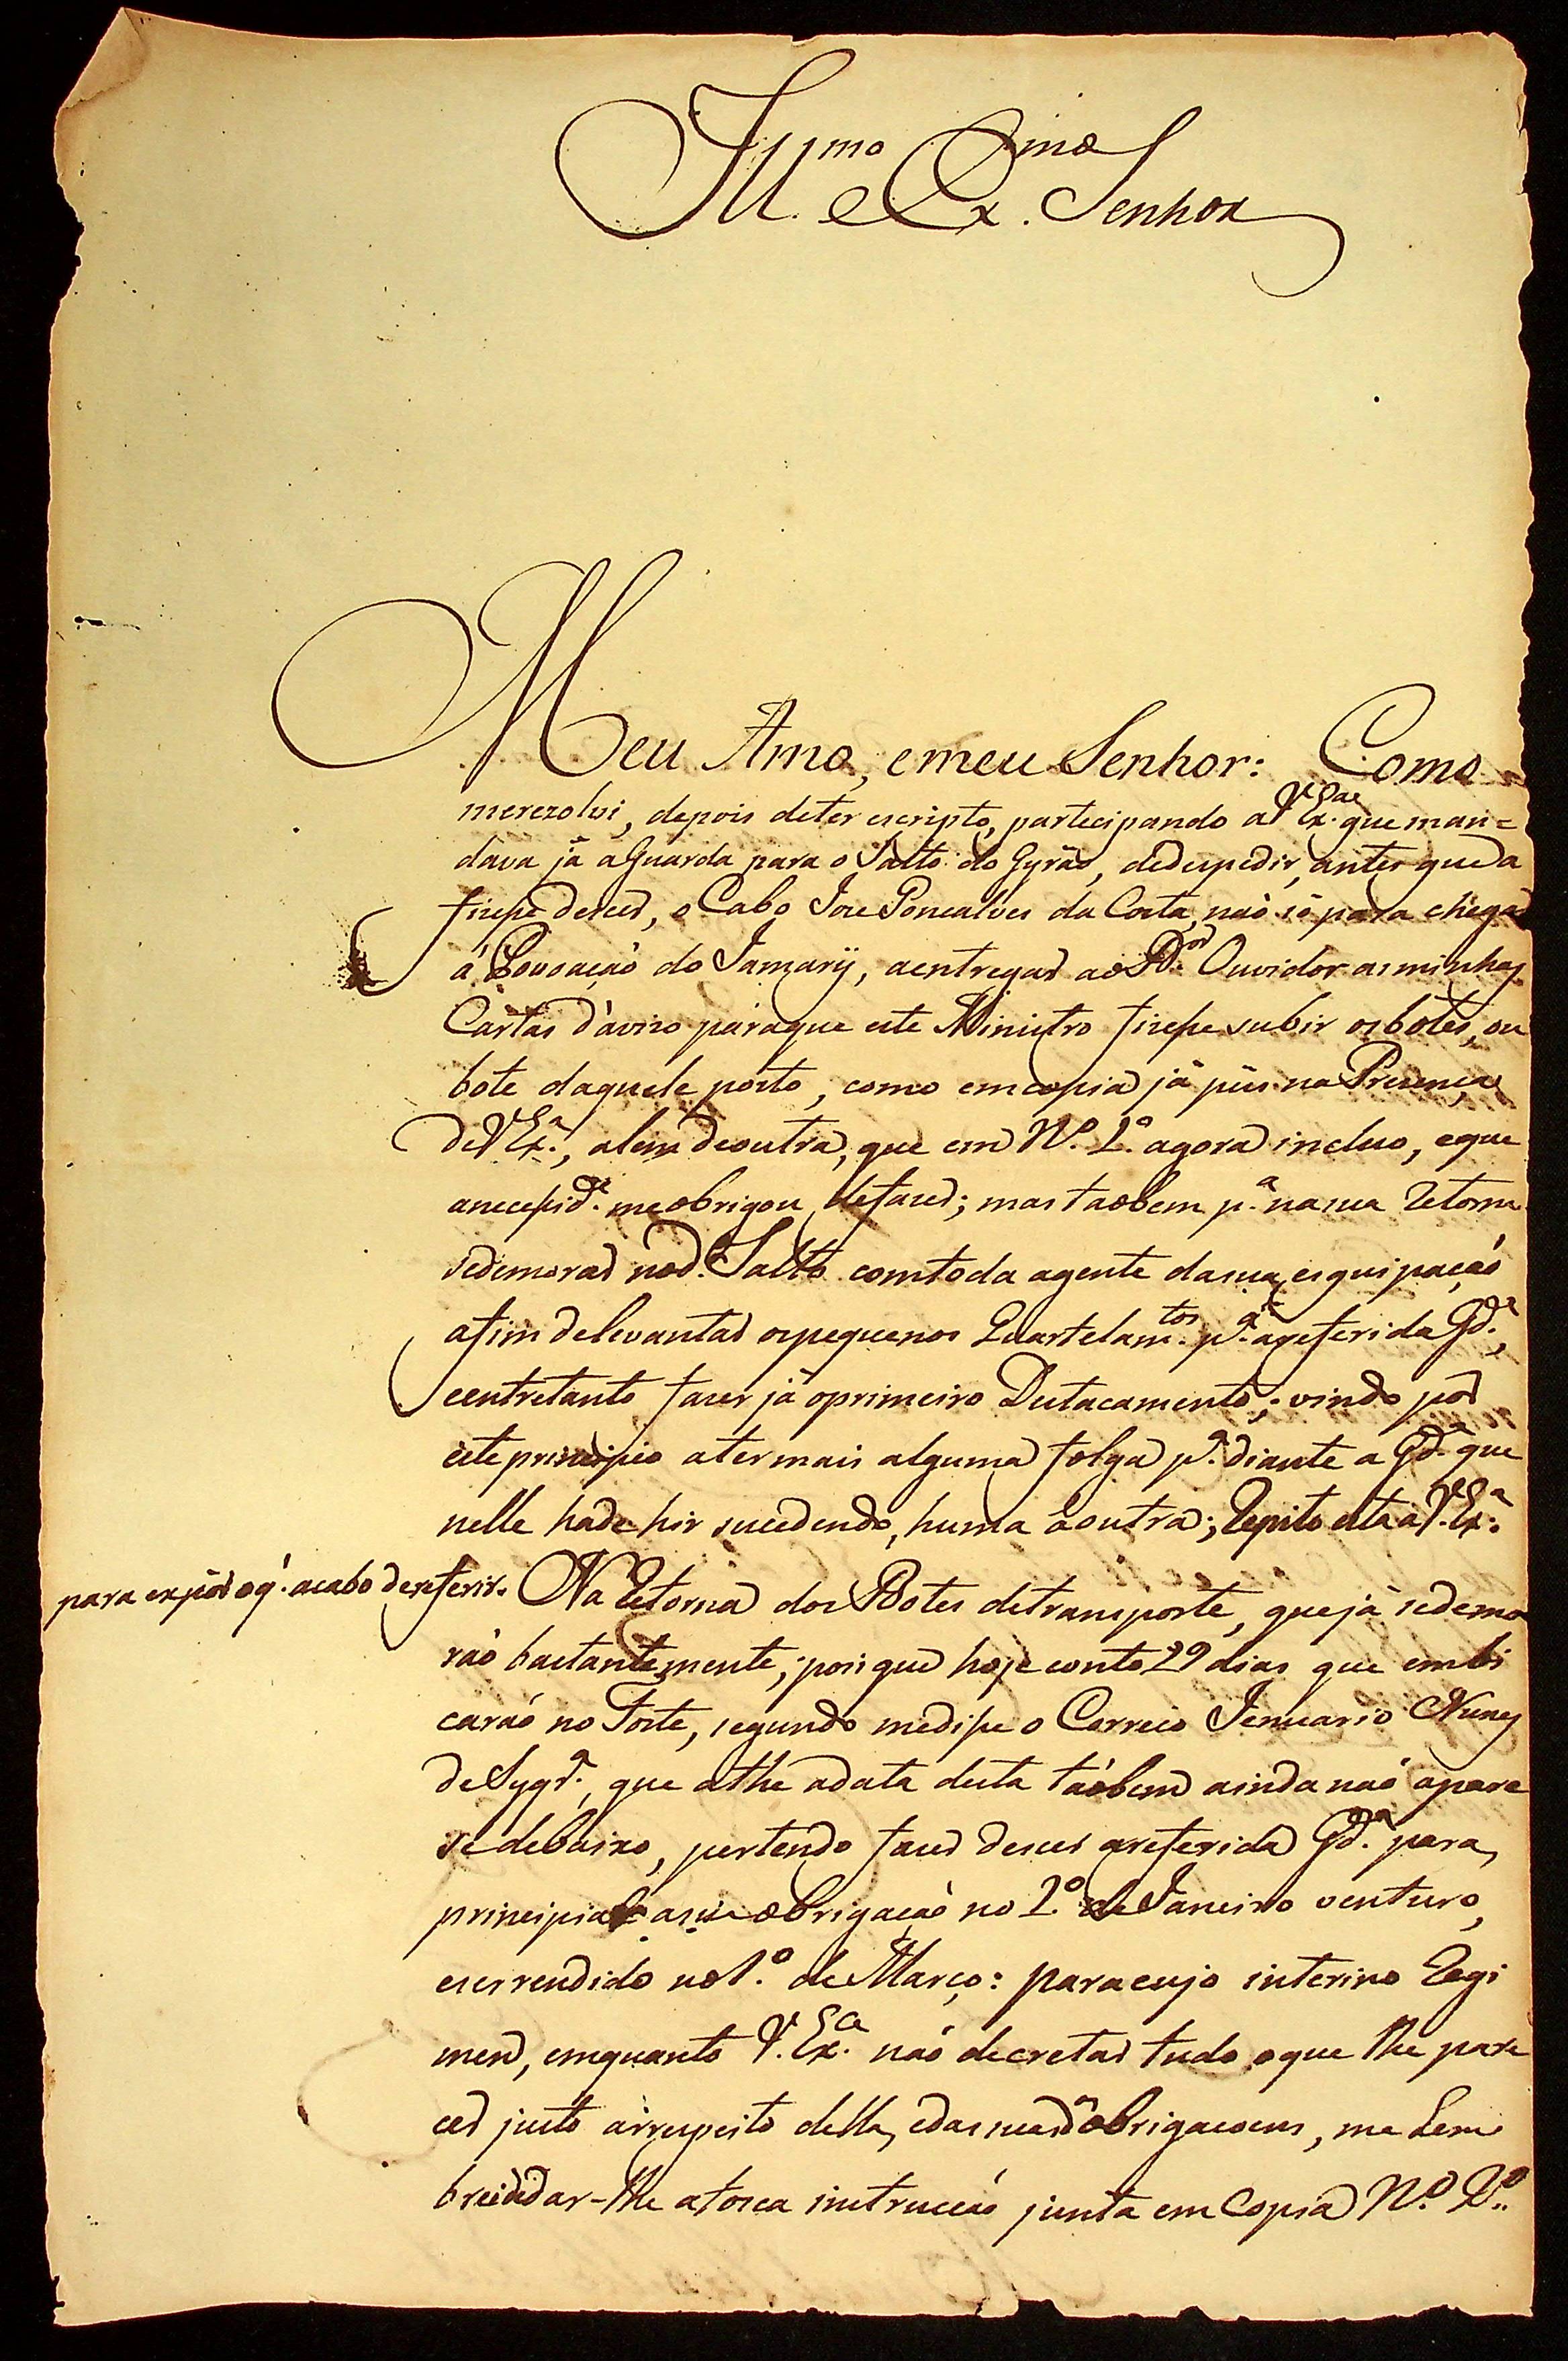 Ill.mo e Ex.mo Senhor
Meu Amo, e meu Senhor: Como
merezolvi, depois deter escripto, partecipando a V.Ex.ª que man=
dava já aGuarda para o Salto do Gyráo, dedespedir, antes que a
fizesse descer, o Cabo Joze Gonçalves da Costa, naó só para chegar
á Povoaçaó do Jamarÿ, aentregar ao D.or Ouvidor as minhas
Cartas d'avizo paraque este Ministro fizesse subir os botes, ou
bote daquele porto, como em copia já púz na Prezença
de V.Ex.ª, alem deoutra, que em N.º 1.º agora incluo, eque
anecessid.e me obrigou defazer; mas taobem p.ª na sua Retorna
sedemorar nod.º Salto comtoda agente dasua esquipaçaó
afim delevantar ospequenos Quartelam.tos p.ª areferida Gd.ª,
eentretanto fazer já oprimeiro Destacamento; vindo por
este principio ater mais alguma folga p.ª diante a Gd.ª que
nelle hade hir sucedendo, huma áoutra; Repito esta a V.Ex.ª
para expór oq' acabo dereferir. Na Retorna dos Botes detransporte, que já sedemo
raó bastantemente; porque hoje conto 29 dias que embi
caraó no Forte, segundo medisse o Correio Jenuario Nunes
de Syqr.ª, que athe adata desta taóbem ainda naó apare
se debaixo, pertendo fazer descer areferida Gd.ª para
principiar asua obrigaçaó no 1.º de Janeiro venturo,
eserrendido no 1.º de Março: para cujo interino Regi
men, emquanto V.Ex.ª naó decretar tudo oque lhe pare
cer justo árrespeito della, edas suas obrigacoens, me Lem
breidedar-lhe atosca instrucçaó junta em Copia N.º 2.º